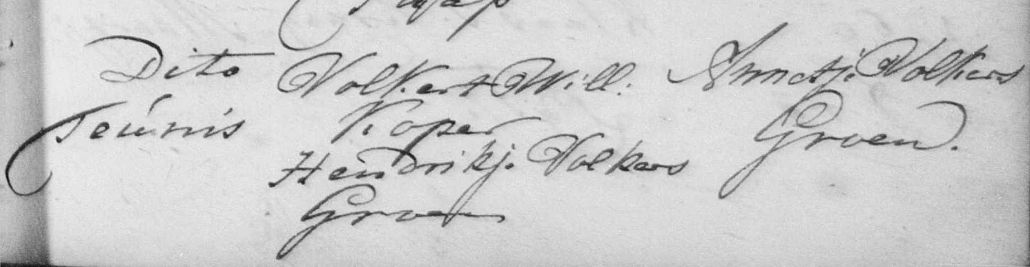 Dito Volkert Will. Annetj. Volkers
Teunis Koper Groen.
Hendrikj. Volkers
Groen